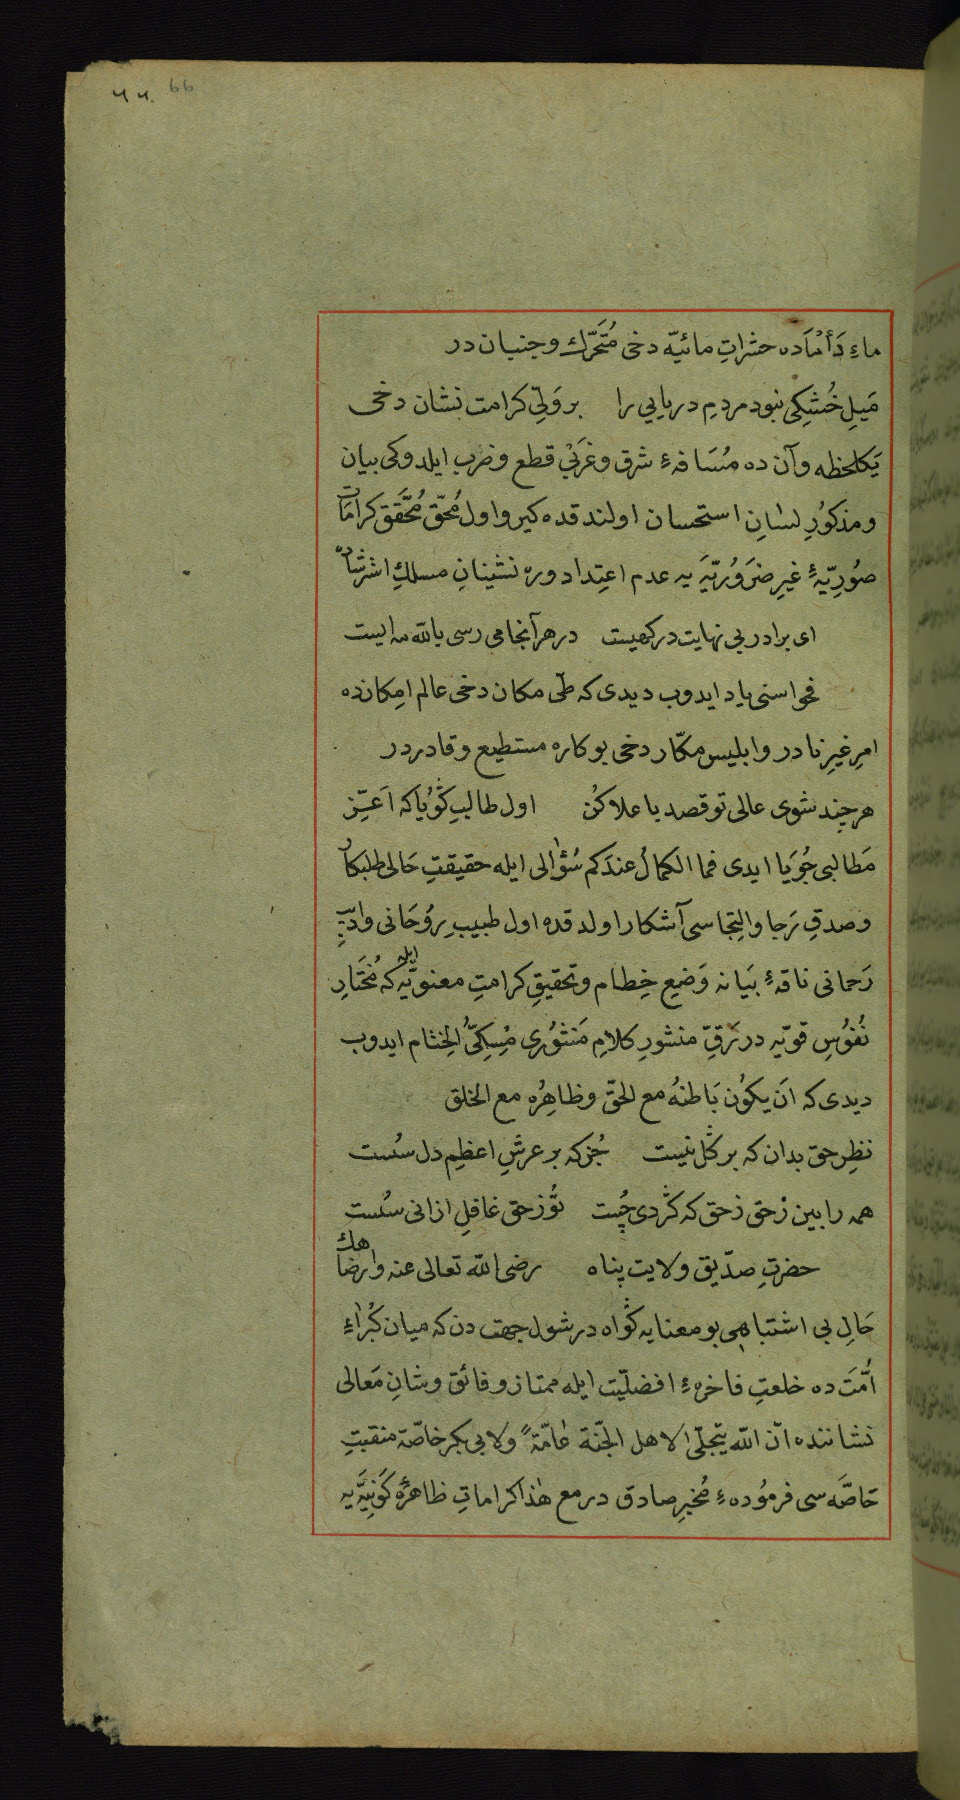 ٦٦ 66
ماءِ دَأمَاده حشراتِ مائیّه دخی مُتَحَرِّك وجنبان در
مَیلِ خُشكِی نبود مردمِ دریایی را بر وَلِیّ كرامت نشان دخی
یَكلحظه وآن ده مُسَافهٔ شرق وغَربی قطع وضرب ایلدوكی بیان
ومذكُورِ لسانِ استحسان اولندقده كیرو اول مُحَقِّق مُحَقَّق كرامَات
صُورِیّهٔ غیرِ ضَرَوُرِیّیَه یه عدم اعتِداد وره نشینانِ مسلكِ اشرشاده
ای برادر بی نهایت دركهیست در هر آنجا می رسی بالله مه ایست
فحواسنی یاد ایدوب دیدی كه طّی مكان دخی عالم امِكانده
امرِ غیرِ نادر وابلیس مكّار دخی بو كاره مستطیع وقادر در
هر چند شوی عالی تو قصد با علا كُن اول طالبِ كُویا كه اَعَزِّ
مَطالبی جُویَا ایدی فما الكمالُ عندَكم سُؤالی ایله حقیقتِ حَالی طلبكار
وصدقِ رَجا والتجاسی آشكار اولدقده اول طبیبِ روُحَانی وادیبِ
رَحمانی ناقهٔ بیَانه وَضعِ خِطام وتحقیقِ كرامتِ معنویّه ایله كه مُختَارِ
نُفوُسِ قویّه در رَقِّ منشورِ كلامِ مَنثوُرِی مِسكِیُّ الخِتام ایدوب
دیدی كه اَن یكوُن بَاطنهُ مع الحقّ وظاهِرُه مع الخلق
نظرِ حق بدان كه بر كُل نیست جُز كه بر عرشِ اعظِم دل سُست
همه را بین زحق زحق كه كَردی چُست تُو زحق غافلِ ازانی سُست
حضرتِ صدّیق ولایت پناه رضی الله تعالی عنه وارضاهك
حَالِ بی اشتباهی بو معنایه كُواه در شول جهت دن كه میان كُبرَاءِ
اُمَّتَ ده خلعتِ فاخرهٔ افضلیّت ایله ممتاز وفائق وشانِ مَعالی
نشاننده انّ الله یتجلّیٰ لاهل الجنّة عَامّةً ولابی بكر خاصّة منقبتِ
خاصَّه سی فرموُدهٔ مُخبِرِ صادق در مع هٰذا كراماتِ ظاهرهٔ كَونِیَّه یه